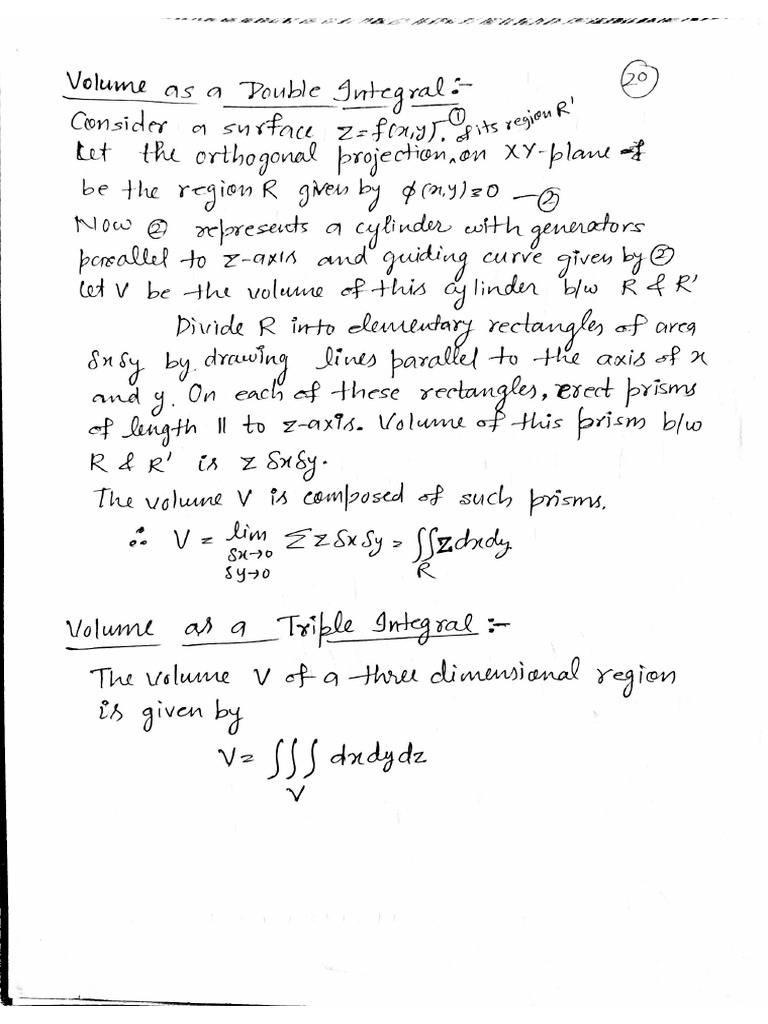 Volume as a Double Integral :-
20
Consider a surface z=f(x,y). ①
Let the orthogonal projection of its region R' on XY-plane
be the region R given by ϕ(x,y)=0 —②
Now ② represents a cylinder with generators
parallel to z-axis and guiding curve given by ②
Let V be the volume of this cylinder b/w R & R'
Divide R into elementary rectangles of area
δxδy by drawing lines parallel to the axis of x
and y. On each of these rectangles, erect prisms
of length || to z-axis. Volume of this prism b/w
R & R' is z δxδy.
The volume V is composed of such prisms.
∴ V = lim Σ z δx δy = ∬ z dxdy
δx→0
δy→0 R
Volume as a Triple Integral :-
The volume V of a three dimensional region
is given by
V = ∭ dxdydz
V